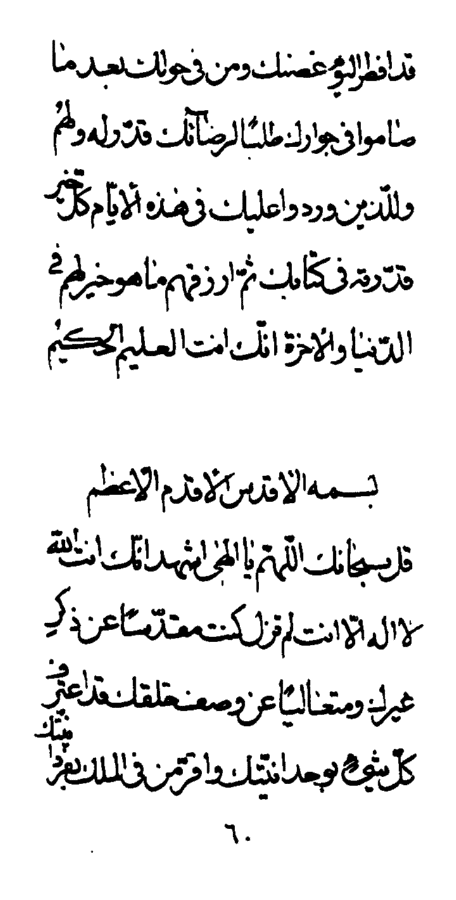 قد افطر اليوم غصنك ومن فى حولك بعد ما
صاموا فى جوارك طلبًا لرضائك قدّر له ولهم
وللّذين وردوا عليك فى هذه الايّام كلّ خير
قدّرته فى كتابك ثمّ ارزقهم ما هو خير لهم فى
الدّنيا والاخرة انّك انت العليم الحكيم
بسمه الاقدس الاقدم الاعظم
قل سبحانك اللّهمّ يا الهى اشهد انّك انت اللّه
لا اله الّا انت لم تزل كنت مقدّسًا عن ذكر
غيرك ومتعاليًا عن وصف خلقك قد اعترف
كلّ شىء بوحدانيّتك واقرّ من فى الملك بفردانيّتك
٦٠